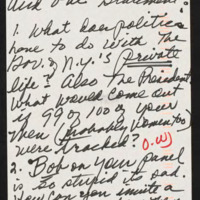 and the Statement.
1. What does politics
have to do with the
Gov. of N.Y.'s private
life? Also the President,
What would come out
if 99 of 100 of your
men (probably women too)
were tracked? O.W.
2. Bob on your panel
is so stupid + sad.
How can you invite a